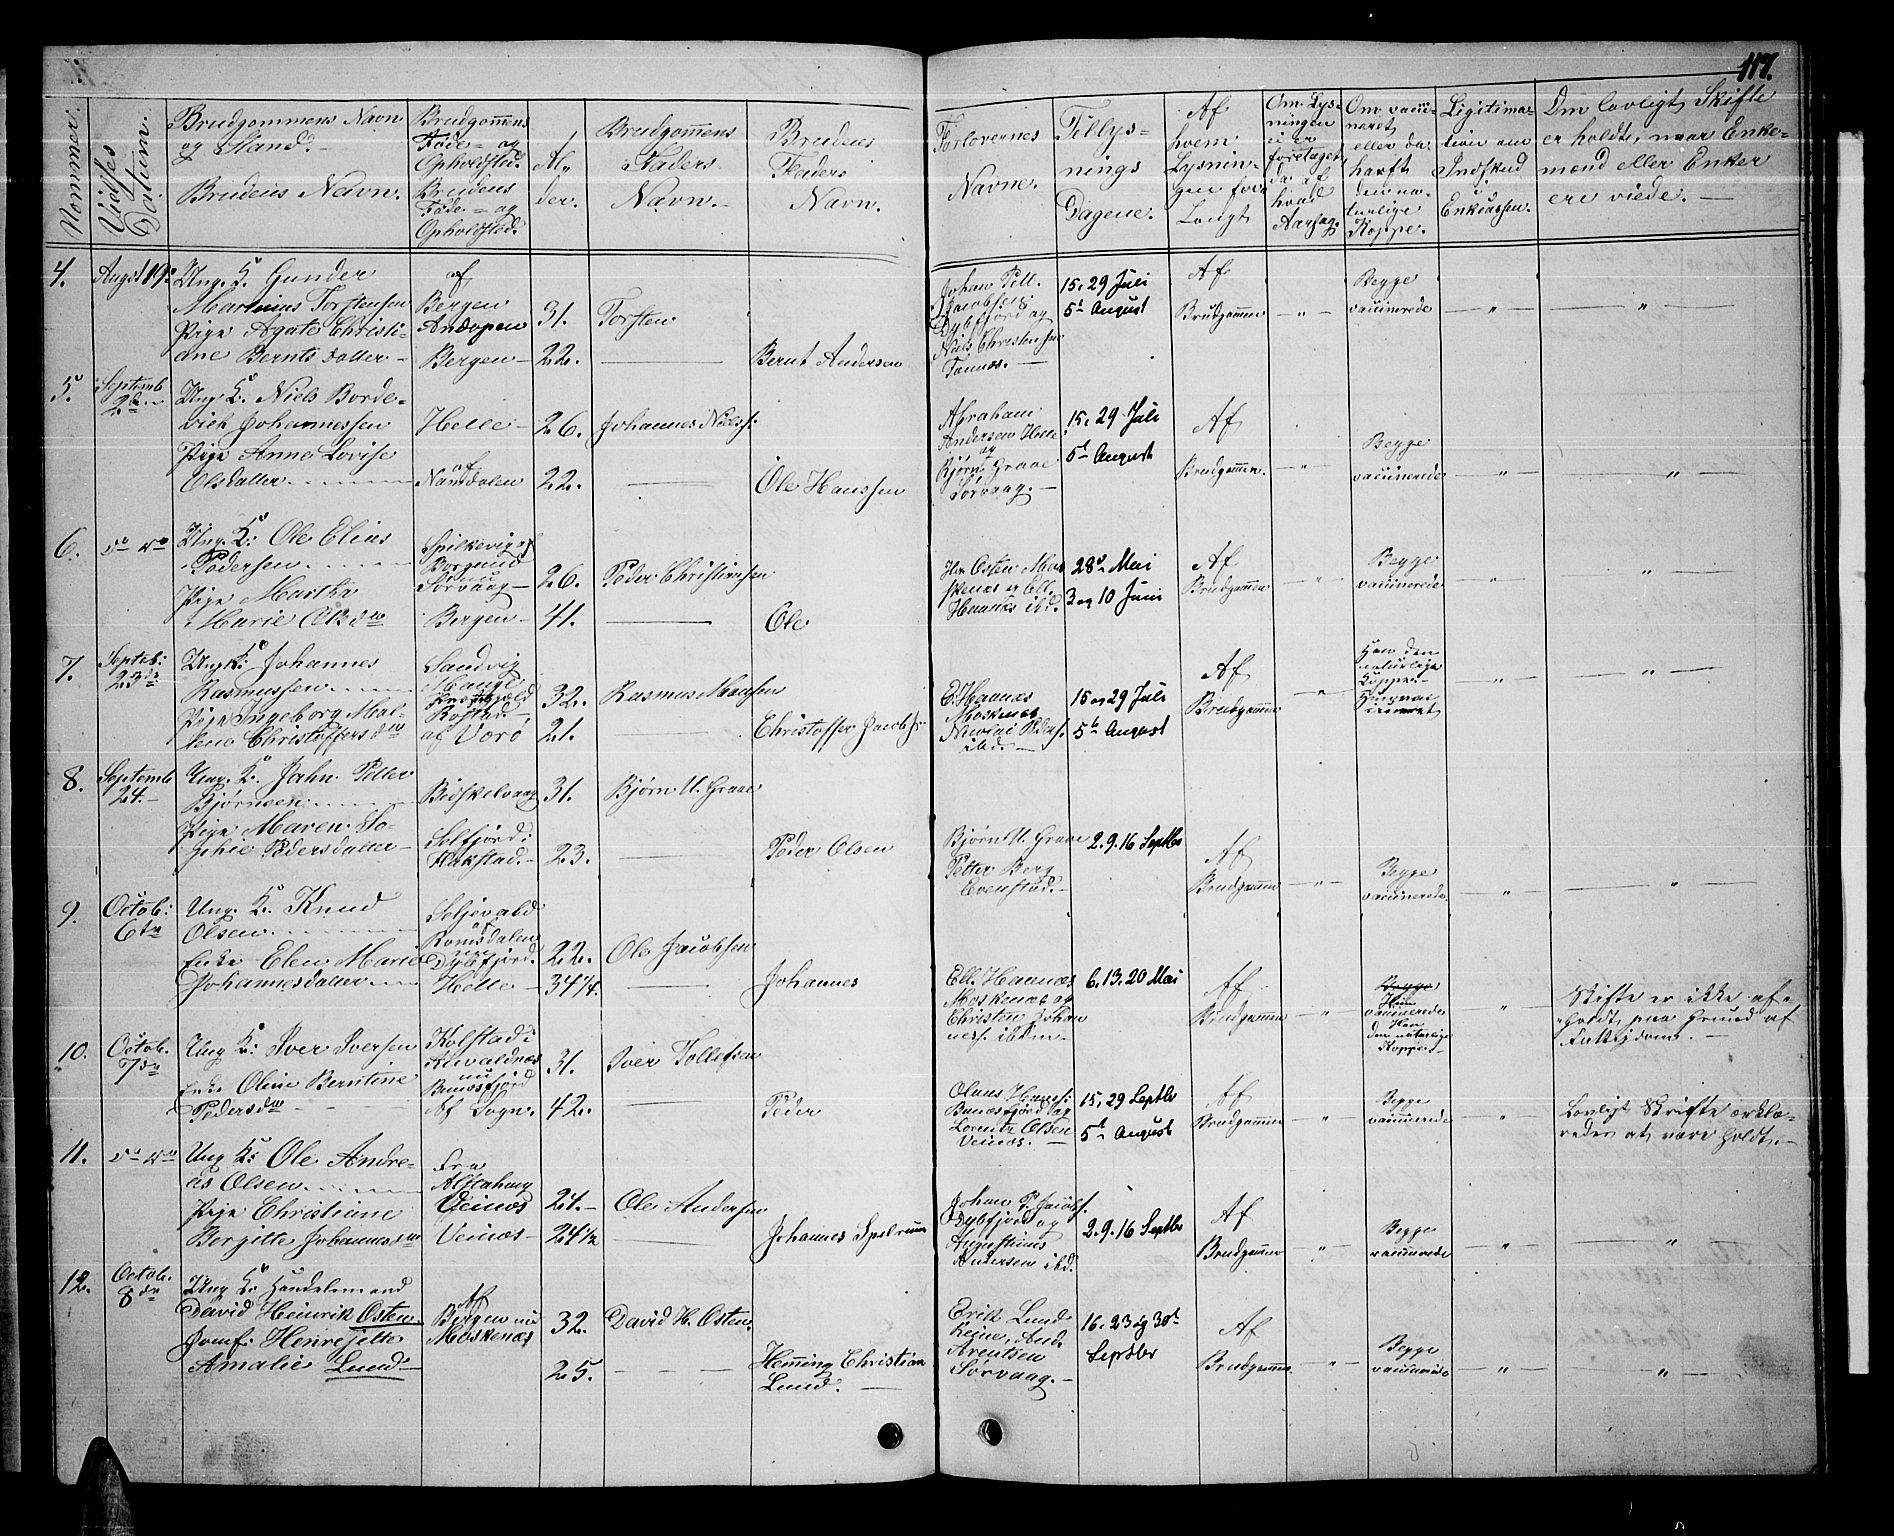 117.
Nommer.
Vielses Datum.
Brudgommens Navn
og Stand.
Brudens Navn.
Brudgommens
Føde- og
Opholdsted.
Brudens
Føde- og
Opholdsted.
Al-
der.
Brudgommens
Faders
Navn.
Brudens
Faders
Navn.
Forlovernes
Navne.
Tillys-
nings
Dagene.
Af
hvem
Lysnin-
gen for-
langt
Om Lys-
ningen
ei er
foretaget
da af
hvad
Aarsag.
Om vacci-
neret
eller da
havft
den na-
turlige
Kopper.
Ligitima-
tion om
Indskud
i
Enkecassen.
Om lovligt Skifte
er holdt, naar Enke-
mænd eller Enker
ere viede.
4. August 19de
Ung. K. Gunder
Martinius Torstensen
Pige Agate Christi-
ane Bernts datter
af
Bergen
Andopen
Bergen
31.
22.
Torsten
Bernt Andersen
Johan Pett.
Jacobsen
Dybfjord og
Niels Christensen
15, 29 Juli
5te August
Af
Brudgommen
Begge
vaccinerede
5. Septemb
2den
Ung. K. Niels Borde-
vich Johannessen
Pige Anne Lovise
Olsdatter
Helle
af
Namdalen
26.
22.
Johannes Niels:
Ole Hanssen
Abraham
Andersen Helle
og
Bjørn Graae
Sørvaag.
15, 29 Juli
5te August
Af
Brudgommen.
Begge
vaccinerede
6. do do
Ung. K. Ole Elias
Pedersen
Pige Martha
Marie Olsdtr
Spilkevig af
Borgund
nu
Sørvaag
Bergen
26.
41.
Peder Christiansen
Ole
Hr. Osten Mos
kenes og Ell.
Haanæs ibd.
28de Mai
3 og 10 Juni
Af
Brudgommen
Begge
vaccinerede
7. Septeb:
23de
Ung. K. Johannes
Rasmussen
Pige Ingeborg Mal-
lene Christoffersdtr
Sandvig
Rostad
af Værø
32.
21.
Rasmus Monsen
Christoffer Jacobs:
E. Haanæs
Moskenæs
Nicolai Peders.
ibd.
15 og 29 Juli
5te August
Af
Brudgommen
Han den
naturlige
Kopper.
Hun vac
cineret
8. Septemb
24.
Ung. K. Jahn Petter
Bjørnsen
Pige Maren So-
phie Pedersdatter
Selfjord:
31.
23.
Bjørn U. Graae
Peder Olsen
Bjørn U. Graae
Petter Berg
Evenstad.
2. 9. 16 Septbr
Af
Brudgommen
Begge
vaccinerede
9. Octob:
6te
Ung. K. Knud
Olsen
Enke Elen Marie
Johannesdatter
Seljevald
af
Romsdalen
Dybfjord.
Helle
22.
34 1/4.
Ole Jacobsen
Johannes
Ell. Haanæs
Moskenæs og
Christen Johan
nes. ibdm
6. 13. 20 Mai
Af
Brudgommen
Begge
Hun
vaccinerede
Han
den naturlige
Kopper.
Skifte er ikke af-
holdt paa Grund af
Fattigdom.
10. Octob.
7de
Ung K: Iver Iversen
Enke Oline Berntine
Pedersdtr
Kolstad i
nu
Bunæsfjord
Af Sogn.
31.
42.
Iver Tollefsen
Peder
Olaus Hans:
Bunæsfjord og
Lorentz Olsen
Veinæs.
15, 29 Septbr
5te August
Af
Brudgommen
Begge
vaccinerede
Lovligt Skifte erklæ-
redes at være holdt.
11. do do
Ung K: Ole Andre-
as Olsen
Pige Christiane
Bergitte Johannesdtr
Fra
Alstahaug
Veinæs
Veinæs
24.
24 1/2
Ole Andersen
Johannes Spelrum
Johan P. Jacobs.
Dybfjord og
Augustinus
Andersen ibd.
2. 9. 16 Septbr
Af
Brudgommen
Begge
vaccinerede
12. Octob.
8de
Ung K: Handelsmand
David Heinrik Osten
Jomf. Henrejette
Amalie Lund
Af
Bergen nu
Moskenæs
32.
25.
David H. Osten.
Hemming Christian
Lund.
Erik Lund
Reine, And.
Arentsen
Sørvaag.
16. 23 og 30te
Septbr
Af
Brudgommen
Begge
vaccinerede